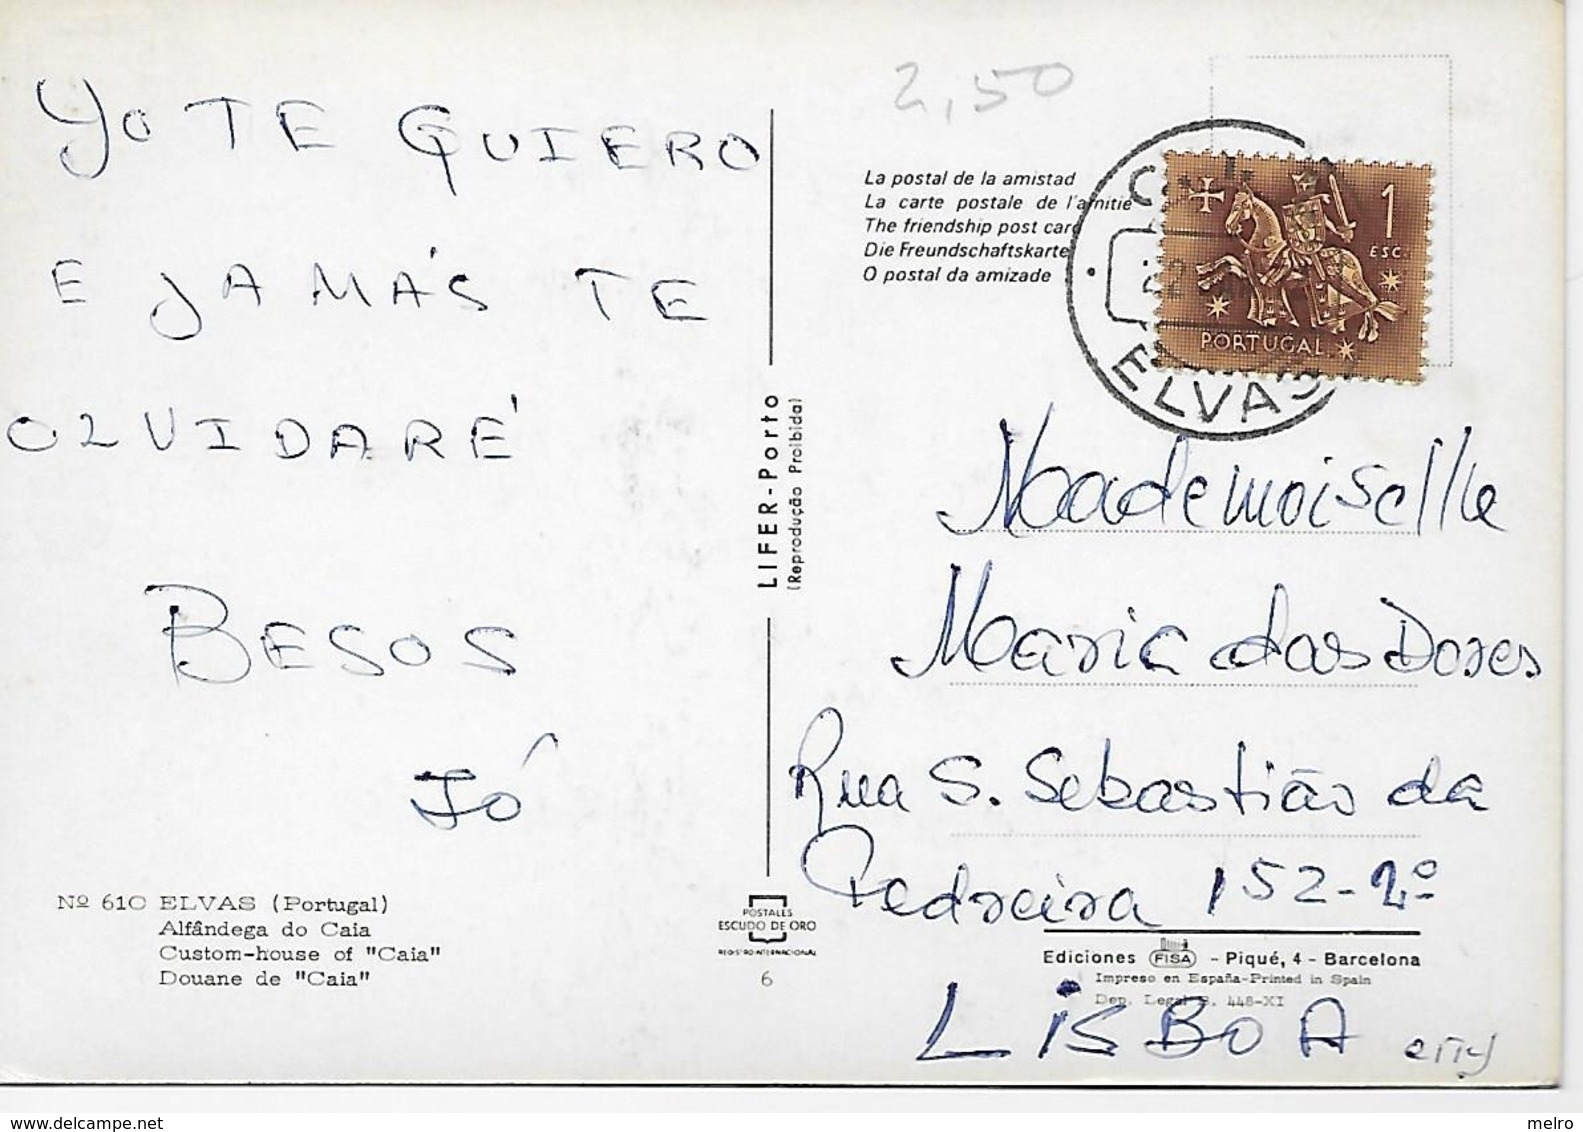 YO TE QUIERO
E JAMÁS TE
OLVIDARÉ
BESOS
JÓ
Nº 610 ELVAS (Portugal)
Alfândega do Caia
Custom-house of "Caia"
Douane de "Caia"
LIFER-Porto
(Reprodução Proibida)
POSTALES
ESCUDO DE ORO
REGISTRO INTERNACIONAL
6
2,50
La postal de la amistad
La carte postale de l'amitie
The friendship post card
Die Freundschaftskarte
O postal da amizade
1
ESC.
PORTUGAL
ELVAS
Mademoiselle
Maria das Dores
Rua S. Sebastião da
Pedreira 152-2º
Ediciones FISA - Piqué, 4 - Barcelona
Impreso en España-Printed in Spain
Dep. Legal B. 448-XI
LISBOA
melro